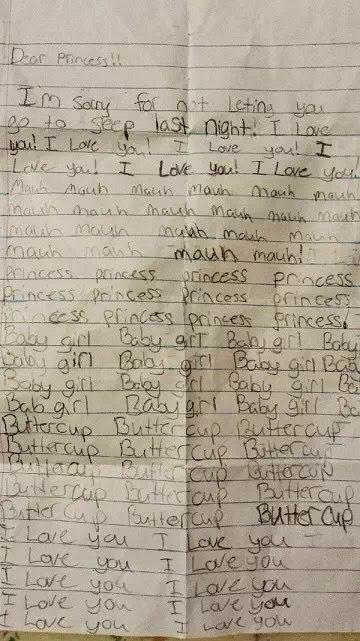 Dear Princess!!
I'm sorry for not leting you
go to sleep last night! I Love
you! I Love you! I Love you! I
Love you! I Love you! I Love you!
Mauh Mauh mauh mauh mauh mauh
mauh mauh mauh mauh mauh mauh
mauh mauh mauh mauh mauh
mauh mauh mauh mauh!
Princess princess princess princess
Princess princess princess princess
princess princess princess princess!
Baby girl Baby girl Baby girl Baby
Baby girl Baby girl Baby girl Bab
Baby girl Baby girl Baby girl Ba
Bab girl Baby girl Baby girl Ba
Buttercup Buttercup Buttercup
Buttercup Buttercup Buttercup
Buttercup Buttercup Buttercup
Buttercup Buttercup Buttercup
Buttercup Buttercup Buttercup
I Love you I Love you
I Love you I Love you
I Love you I Love you
I Love you I Love you
I Love you I Love you